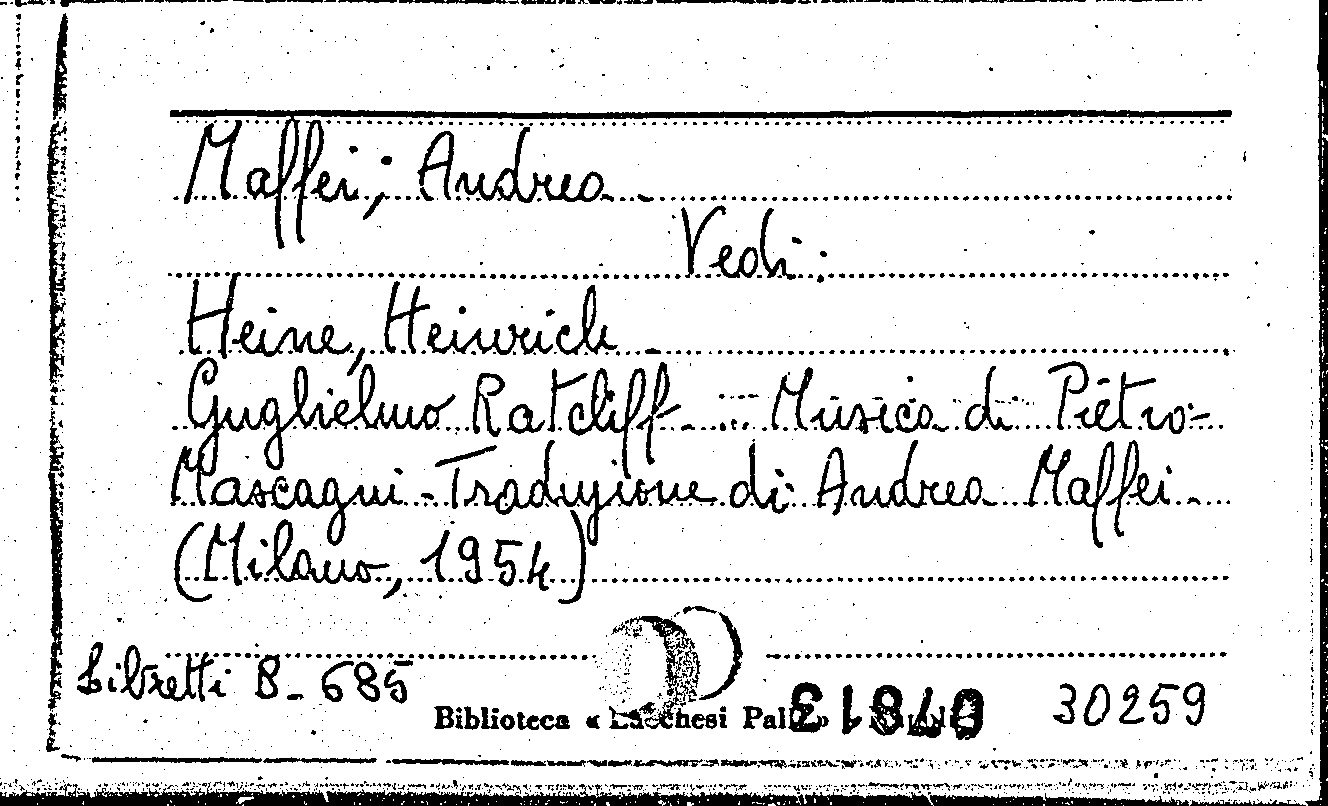 Maffei, Andrea -
Vedi:
Heine, Heinrich -
Guglielmo Ratcliff - ... Musica di Pietro
Mascagni - Traduzione di Andrea Maffei -
(Milano, 1954)
Libretti B - 685
Biblioteca « Lucchesi Palli »
30259